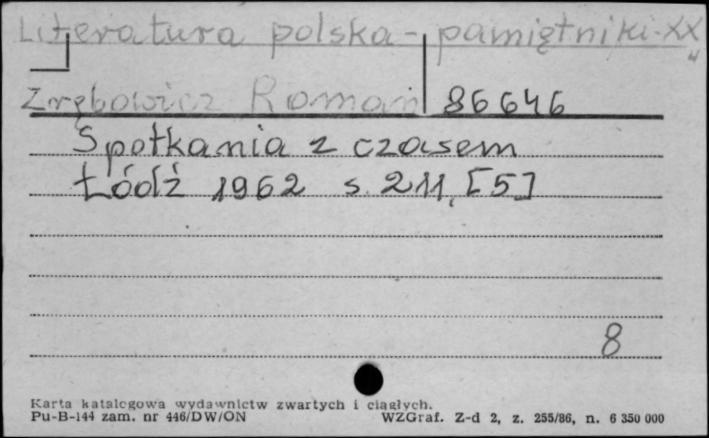 Literatura polska - pamiętniki - XX w
Zrębowicz Roman 86646
Spotkania z czasem
Łódź 1962 s. 211, [5]
8
Karta katalogowa wydawnictw zwartych i ciągłych.
Pu-B-144 zam. nr 446/DW/ON WZGraf. Z-d 2, z. 255/86, n. 6 350 000